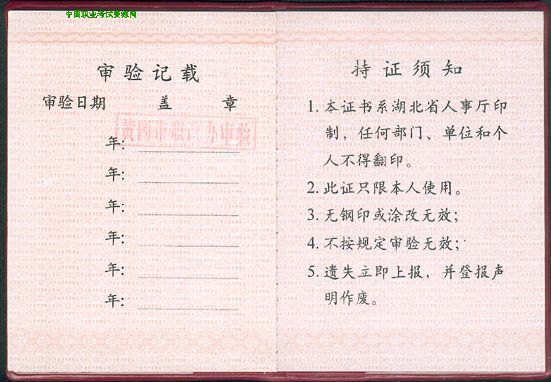 中国职业考试资源网
审验记载
审验日期 盖 章
黄冈市职改办审验
年:
年:
年:
年:
年:
年:
持证须知
1. 本证书系湖北省人事厅印
制，任何部门、单位和个
人不得翻印。
2. 此证只限本人使用。
3. 无钢印或涂改无效；
4. 不按规定审验无效；
5. 遗失立即上报，并登报声
明作废。